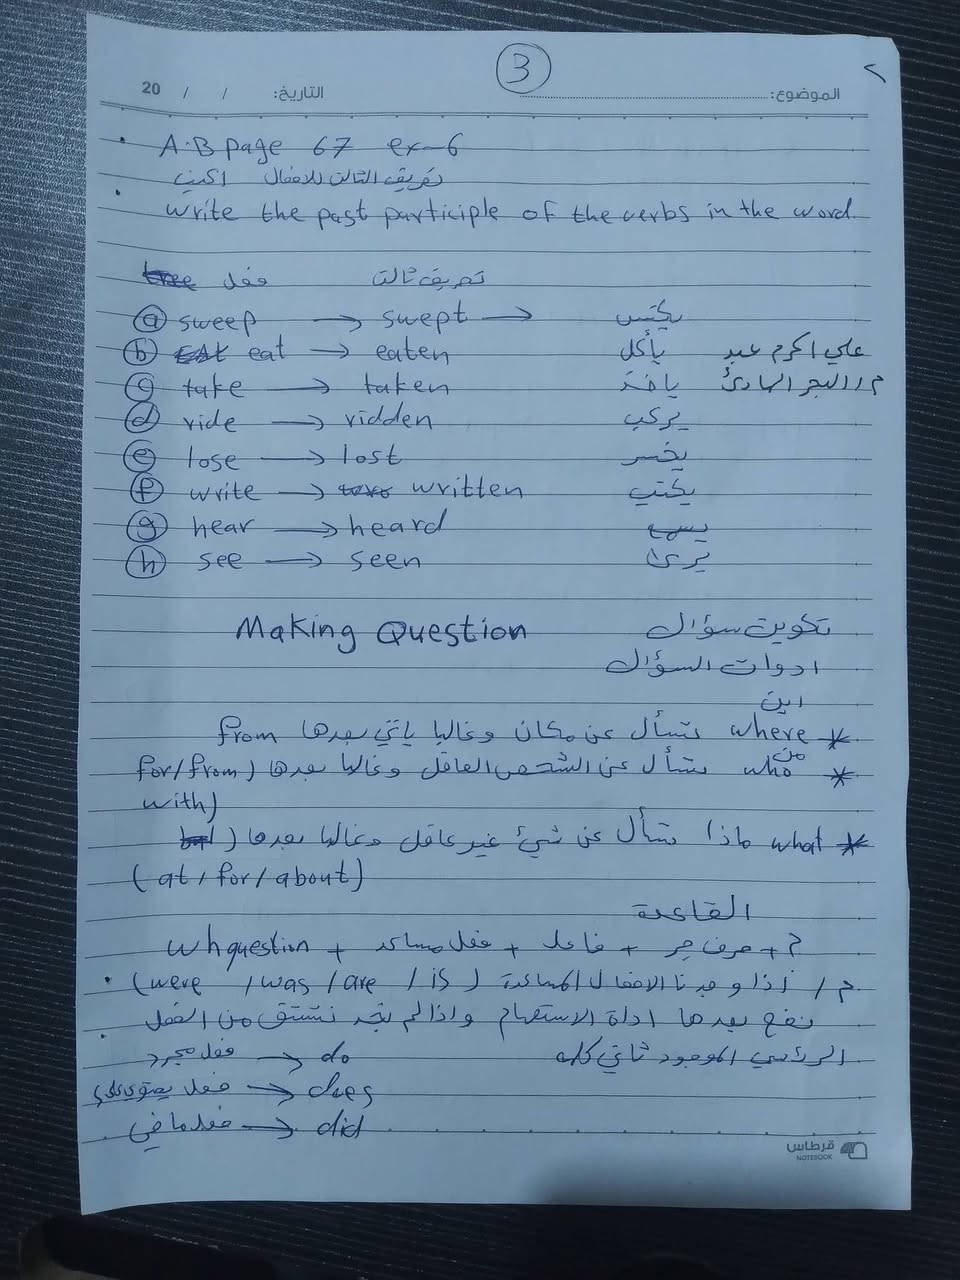 3
الموضوع:
التاريخ: / / 20
A.B page 67 ex-6
تصريف الثالث للافعال اكتب
Write the past participle of the verbs in the word.
فعل تصريف ثالث
a sweep → swept → يكنس
b eat → eaten يأكل علي اكرم عبد
c take → taken ياخذ م/ البحر الهادئ
d ride → ridden يركب
e lose → lost يخسر
f write → written يكتب
g hear → heard يسمع
h see → seen يرى
Making Question تكوين سؤال
ادوات السؤال
اين
* where نسأل عن مكان وغالبا ياتي بعدها from
من
* who نسأل عن الشخص العاقل وغالبا بعدها (for/from
with)
* what ماذا نسأل عن شيئ غير عاقل وغالبا بعدها (
(at/for/about)
القاعدة
wh question + فعل مساعد + فاعل + حرف جر + ?
م/ أذا وجدنا الافعال المساعدة (is / are / was / were)
نضع بعدها اداة الاستفهام واذا لم نجد نشتق من الفعل
الرئيسي الموجود ثاني كلمة do → فعل مجرد
does → فعل يحتوي على s
did → فعل ماضي
قرطاس
NOTEBOOK